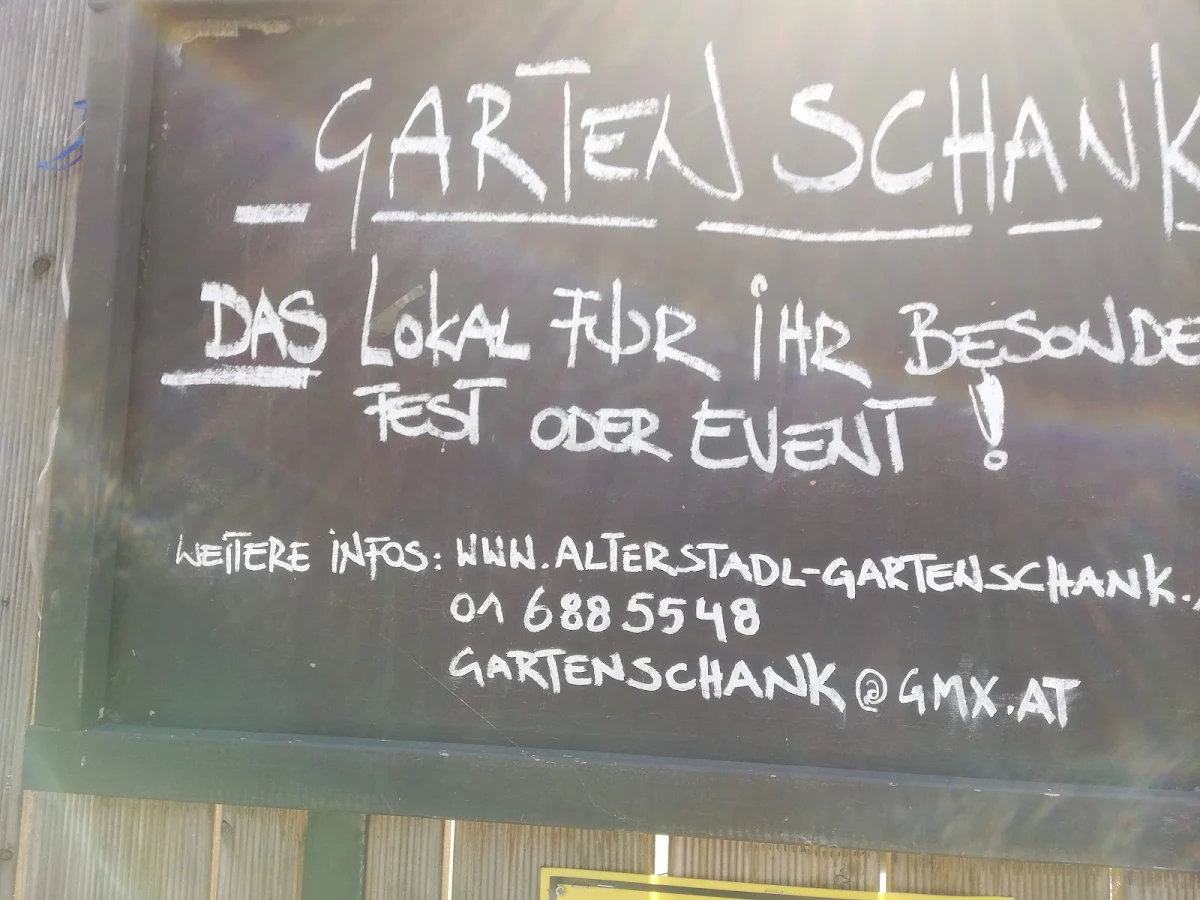 GARTENSCHANK
DAS LOKAL FÜR IHR BESONDE
FEST ODER EVENT!
WEITERE INFOS: WWW.ALTERSTADL-GARTENSCHANK.
01 688 55 48
GARTENSCHANK@GMX.AT